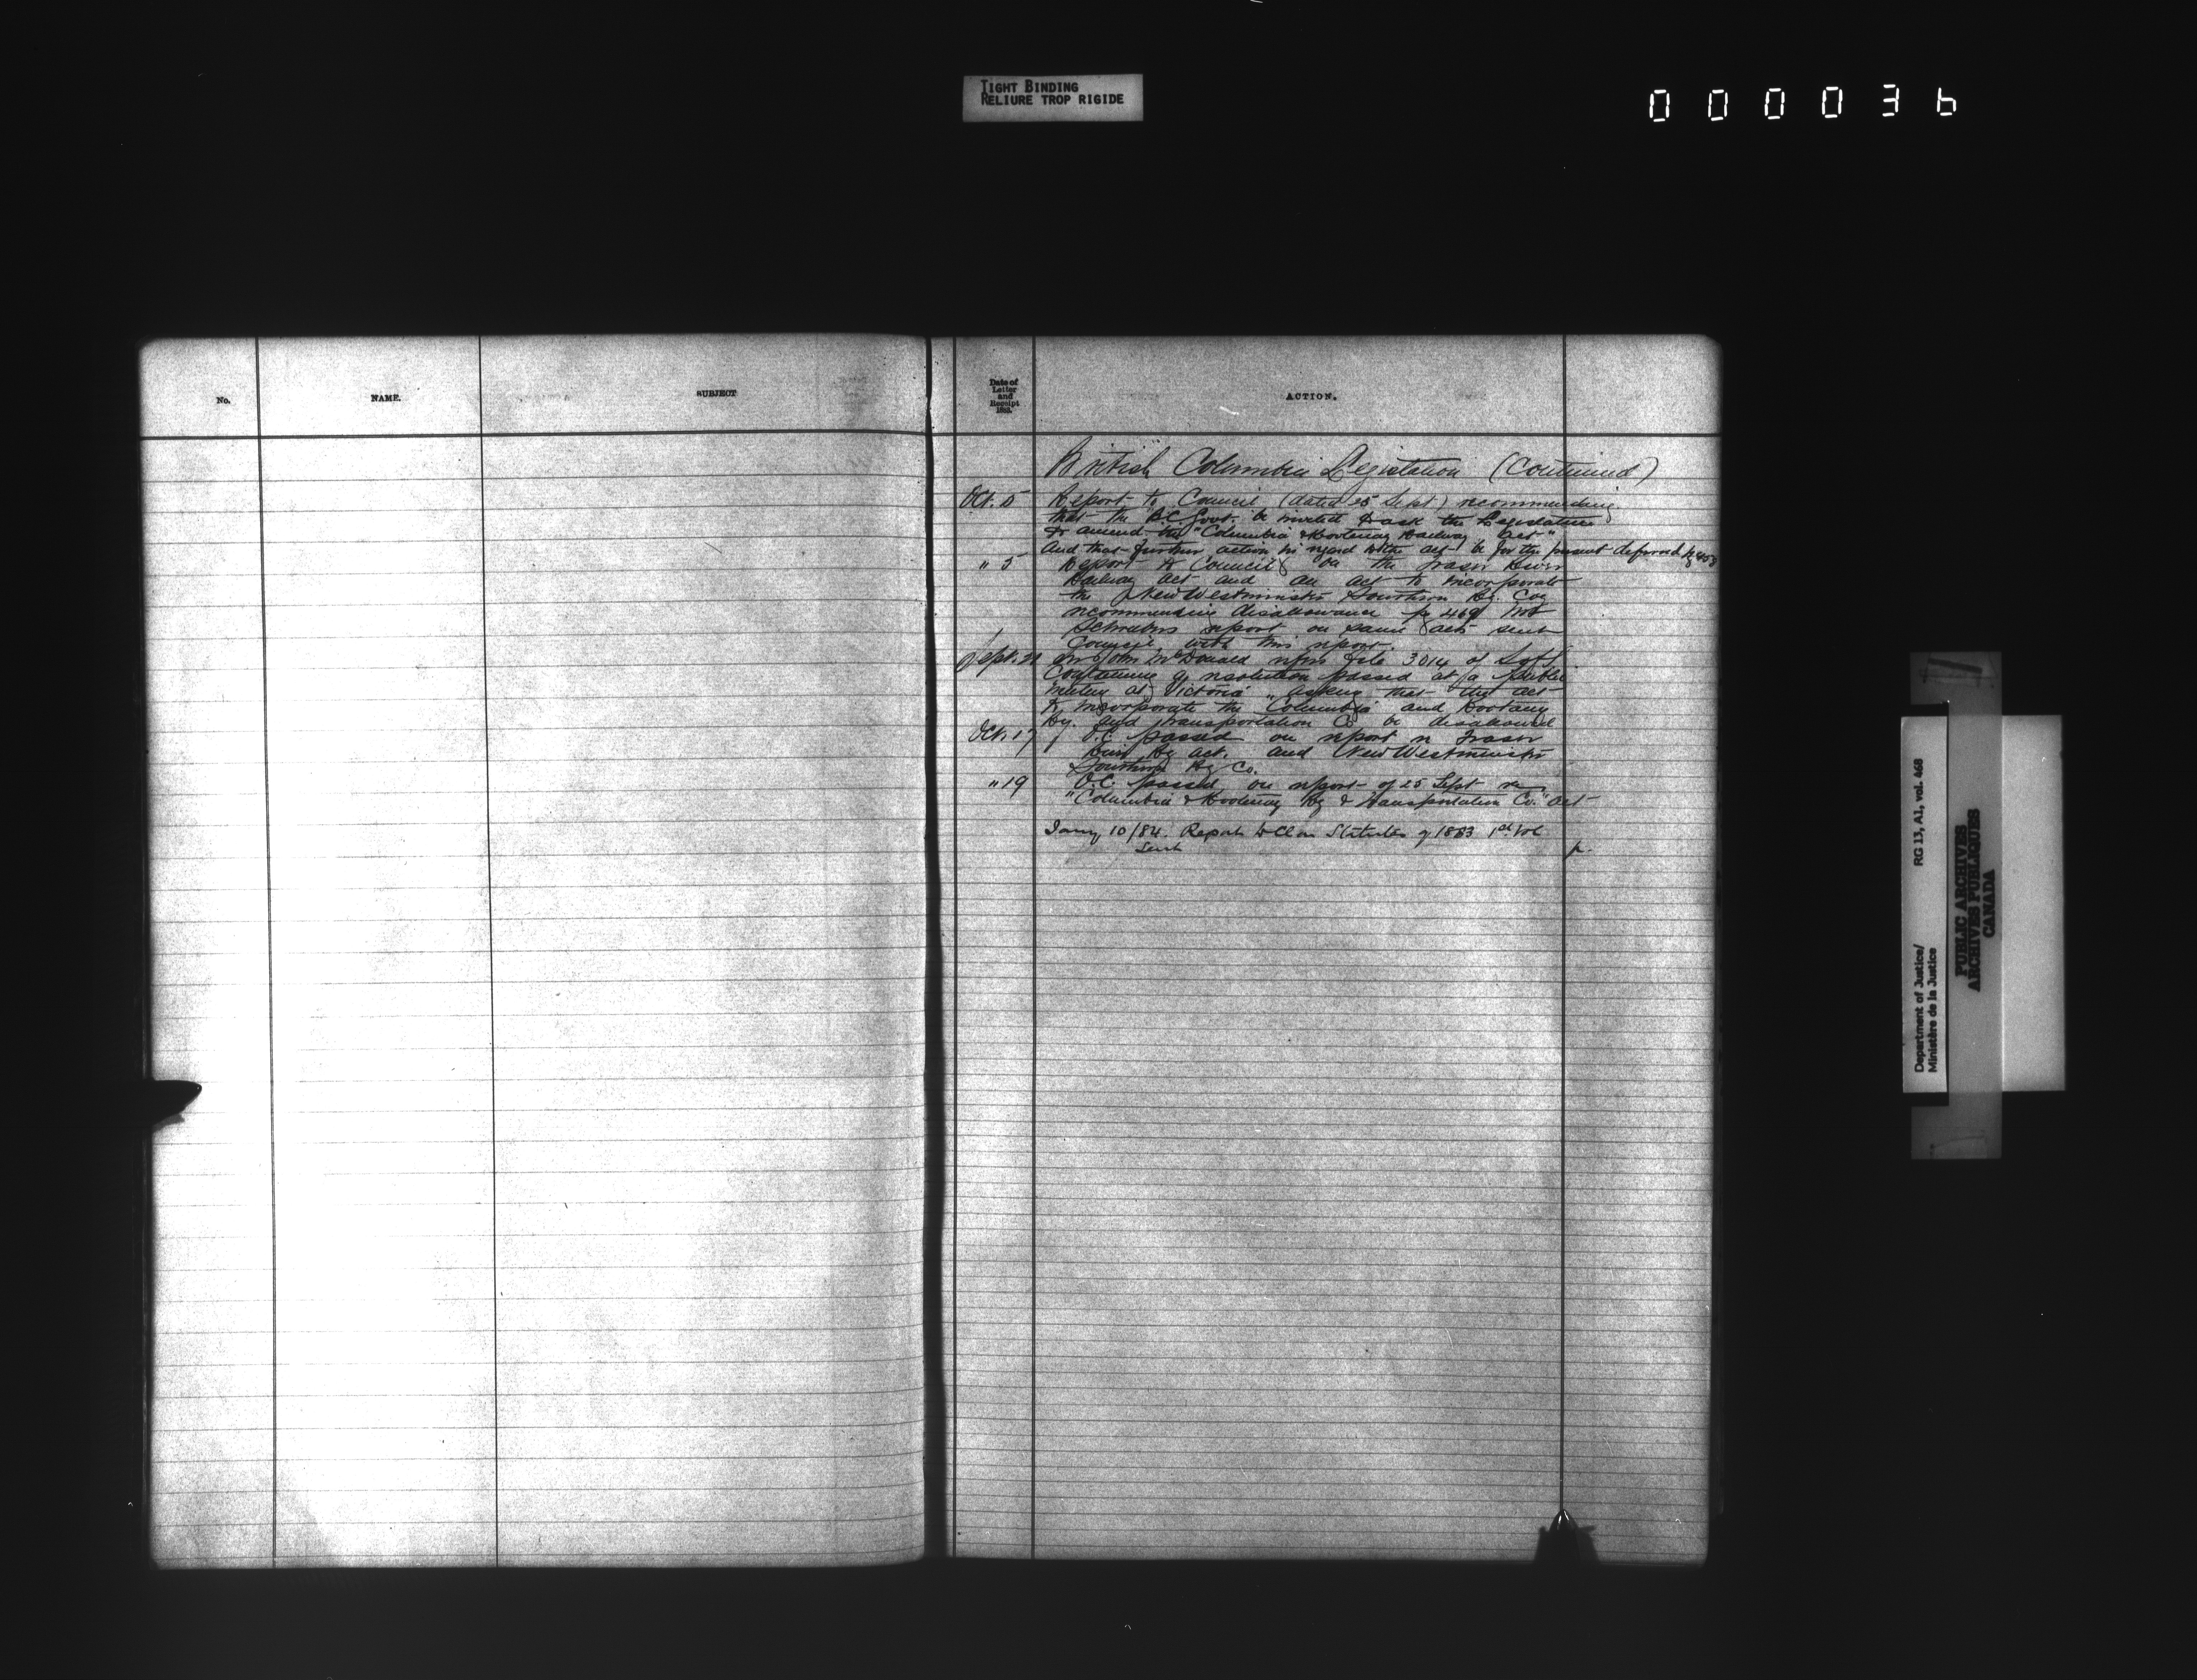 TIGHT BINDING
RELIURE TROP RIGIDE
000036
No.
NAME.
SUBJECT
Date of
Letter
and
Receipt
188
ACTION.
British Columbia Legislation (Continued)
Oct. 5 Report to Council (dated 25 Sept) recommending
that the B.C. Govt. be invited to ask the Legislature
to amend the "Columbia & Kootenay Railway Act"
And that further action in regard to the act be for the present deferred pg 453
" 5 Report to Council on the Fraser River
Railway act and an act to incorporate
the New Westminster Southern Ry. Coy
recommending disallowance pg 469 Mr
Schreibers report on same acts sent
Council with this report.
Sept. 21 Sir John McDonald refers file 3014 of
containing a resolution passed at a public
meeting at Victoria asking that the act
to incorporate the Columbia and Kootany
Ry. and transportation Co be disallowed
Oct. 17 O.C. passed on report re Fraser
River Ry act. and New Westminster
Southern Ry Co.
" 19 O.C. passed on report of 25 Sept re
"Columbia & Kootenay Ry & Transportation Co." act
Jany 10/84. Report to Cl on Statutes of 1883 1st Vol
sent p.
Department of Justice/
Ministère de la Justice
RG 13, A1, vol. 468
PUBLIC ARCHIVES
ARCHIVES PUBLIQUES
CANADA